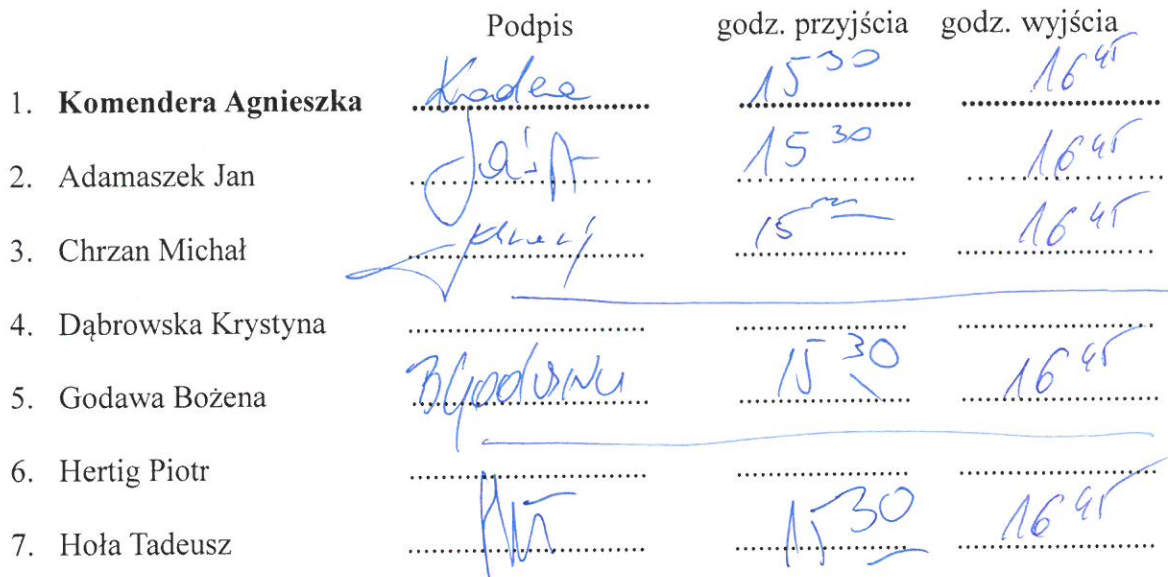 Podpis godz. przyjścia godz. wyjścia
1. Komendera Agnieszka 15 30 16 45
2. Adamaszek Jan 15 30 16 45
3. Chrzan Michał 15 16 45
4. Dąbrowska Krystyna
5. Godawa Bożena 15 30 16 45
6. Hertig Piotr
7. Hoła Tadeusz 15 30 16 45